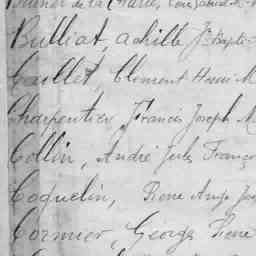 de la
Bulliat, Achille Jn Bapte
Caillet, Clément Henri M
Charpentier, Francis Joseph M
Collin, André Jules Franço
Coquelin, Pierre Ange Jos
Cormier, George Pierre